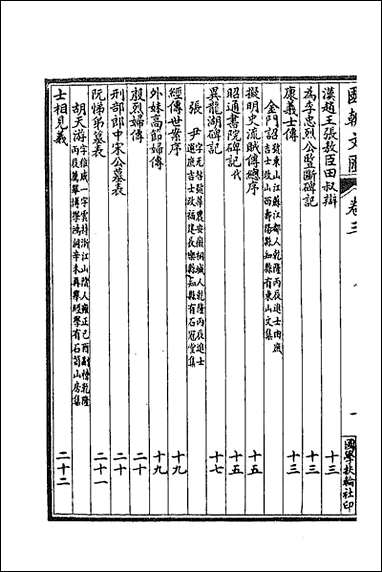 國朝文匯 卷三 一 國學扶輪社印
漢趙王張敖臣田叔辯 十三
為李忠烈公暨斷碑記 十三
康義士傳 十三
金門詔 字東山江蘇江都人乾隆丙辰進士由庶吉士改山西壽陽縣知縣有東山文集
擬明史流賊傳總序 十五
昭通書院碑記代 十五
異龍湖碑記 十七
張尹 字无咎號莘農安徽桐城人乾隆丙辰進士選庶吉士改福建長樂縣知縣有石冠堂集
經傳世案序 十九
外妹高節婦傳 十九
殷烈婦傳 二十
刑部郎中宋公墓表 二十
阮悌弟墓表 二十一
胡天游 字稚威一字雲持浙江山陰人雍正己酉副榜乾隆丙辰薦舉博學鴻詞辛未再舉經學有石笥山房集
士相見義 二十二